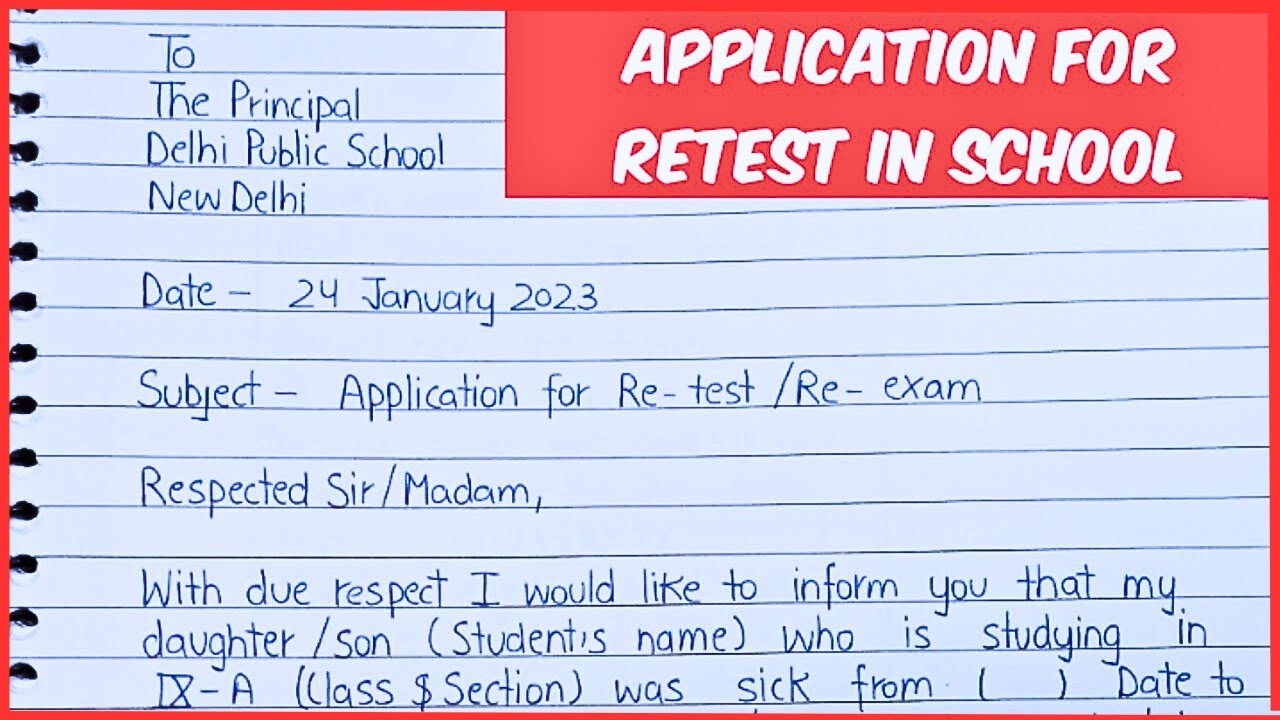 APPLICATION FOR
RETEST IN SCHOOL
To
The Principal
Delhi Public School
New Delhi
Date - 24 January 2023
Subject - Application for Re-test /Re-exam
Respected Sir/Madam,
With due respect I would like to inform you that my
daughter/son (Student's name) who is studying in
IX-A (Class $ Section) was sick from ( ) Date to